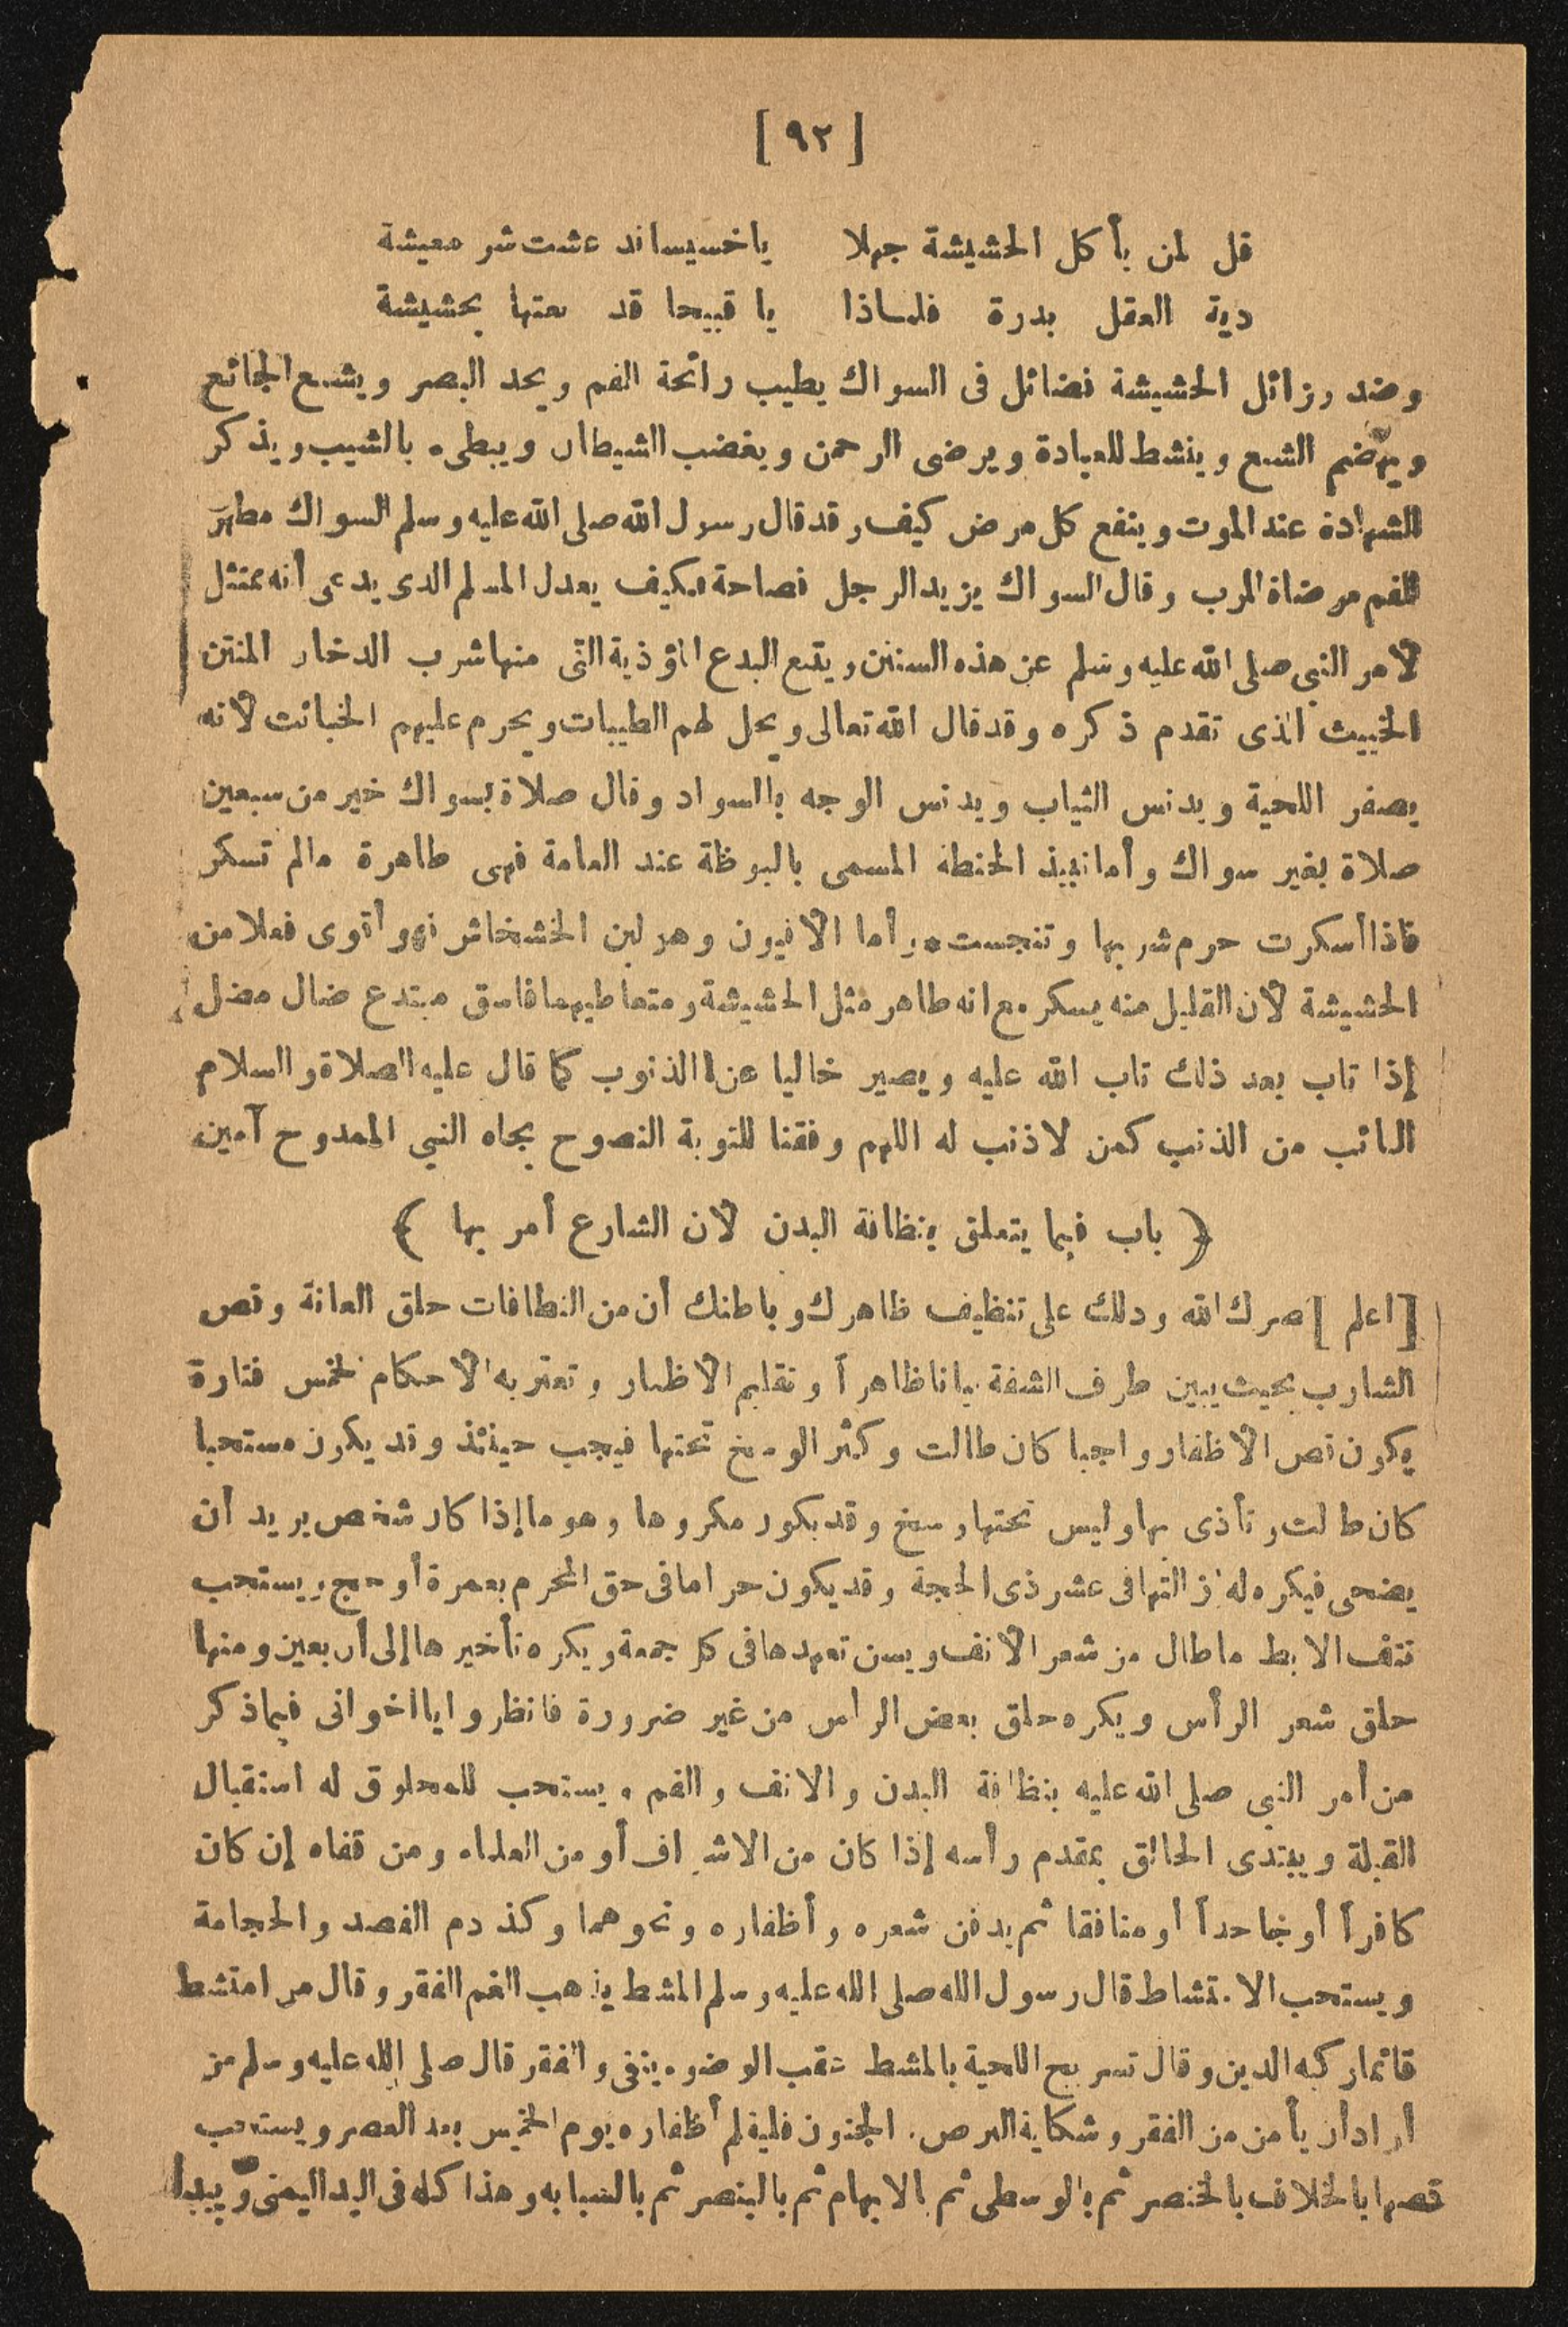 [ ٩٢ ]
قل لمن يأكل الحشيشة جهلا ياخسيسا قد عشت شر معيشة
دية العقل بدرة فلماذا يا قبيحا قد بعتها بحشيشة
وضد رزائل الحشيشة فضائل فى السواك يطيب رائحة الفم ويحد البصر ويشبع الجائع
ويهضم الشبع وينشط للعبادة ويرضى الرحمن ويغضب الشيطان ويبطىء بالشيب ويذكر
الشهادة عند الموت وينفع كل مرض كيف وقد قال رسول الله صلى الله عليه وسلم السواك مطهرة
للفم مرضاة للرب وقال السواك يزيد الرجل فصاحة فكيف يعدل المسلم الذى يدعى أنه ممتثل
لأمر النبى صلى الله عليه وسلم عن هذه السنن ويتبع البدع المؤذية التى منها شرب الدخان المنتن
الخبيث الذى تقدم ذكره وقد قال الله تعالى ويحل لهم الطيبات ويحرم عليهم الخبائث لأنه
يصفر اللحية ويدنس الثياب ويدنس الوجه بالسواد وقال صلاة بسواك خير من سبعين
صلاة بغير سواك وأما نبيذ الحنطة المسمى بالبوظة عند العامة فهى طاهرة مالم تسكر
فاذا أسكرت حرم شربها وتنجست وأما الأفيون وهو لبن الخشخاش فهو أقوى فعلا من
الحشيشة لأن القليل منه يسكر مع انه طاهر مثل الحشيشة ومتعاطيهما فاسق مبتدع ضال مضل
إذا تاب بعد ذلك تاب الله عليه ويصير خاليا عن الذنوب كما قال عليه الصلاة والسلام
التائب من الذنب كمن لاذنب له اللهم وفقنا للتوبة النصوح بجاه النبي الممدوح آمين
﴿ باب فيما يتعلق بنظافة البدن لأن الشارع أمر بها ﴾
[ اعلم ] بصرك الله ودلك على تنظيف ظاهرك وباطنك أن من النظافات حلق العانة وقص
الشارب بحيث يبين طرف الشفة بيانا ظاهراً وتقليم الأظفار وتعتريه الأحكام الخمس فتارة
يكون قص الأظفار واجبا كان طالت وكثر الوسخ تحتها فيجب حينئذ وقد يكون مستحبا
كان طالت وتأذى بها وليس تحتها وسخ وقد يكون مكروها وهو ما إذا كان شخص يريد أن
يضحى فيكره له إزالتها فى عشر ذى الحجة وقد يكون حراما فى حق المحرم بعمرة أو حج ويستحب
نتف الابط ما طال من شعر الأنف ويسن تعهدها فى كل جمعة ويكره تأخيرها إلى أربعين ومنها
حلق شعر الرأس ويكره حلق بعض الراس من غير ضرورة فانظروا يا اخوانى فيما ذكر
من أمر النبي صلى الله عليه بنظافة البدن والانف والفم ويستحب للمحلوق له استقبال
القبلة ويبتدى الحالق بمقدم رأسه إذا كان من الاشراف أو من العلماء ومن قفاه إن كان
كافراً أو جاحداً أو منافقا ثم يدفن شعره وأظفاره ونحوهما وكذ دم الفصد والحجامة
ويستحب الامتشاط قال رسول الله صلى الله عليه وسلم المشط يذهب الغم الفقر وقال من امتشط
قائما ركبه الدين وقال تسريح اللحية بالمشط عقب الوضوء ينفى الفقر قال صلى الله عليه وسلم من
أراد أن يأمن من الفقر وشكاية البرص. الجنون فليقلم أظفاره يوم الخميس بعد العصر ويستحب
قصها بالخلاف بالخنصر ثم بالوسطى ثم الابهام ثم بالبنصر ثم بالسبابه وهذا كله فى اليد اليمنى ويبدأ